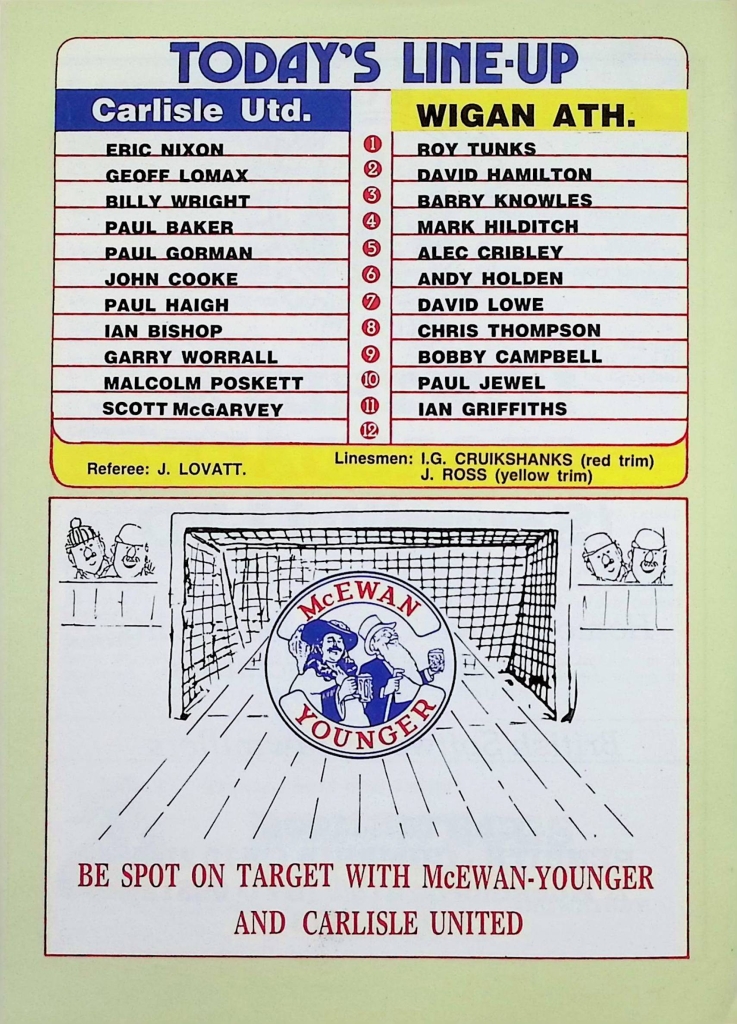 TODAY'S LINE-UP
Carlisle Utd. WIGAN ATH.
ERIC NIXON 1 ROY TUNKS
GEOFF LOMAX 2 DAVID HAMILTON
BILLY WRIGHT 3 BARRY KNOWLES
PAUL BAKER 4 MARK HILDITCH
PAUL GORMAN 5 ALEC CRIBLEY
JOHN COOKE 6 ANDY HOLDEN
PAUL HAIGH 7 DAVID LOWE
IAN BISHOP 8 CHRIS THOMPSON
GARRY WORRALL 9 BOBBY CAMPBELL
MALCOLM POSKETT 10 PAUL JEWEL
SCOTT McGARVEY 11 IAN GRIFFITHS
12
Referee: J. LOVATT. Linesmen: I.G. CRUIKSHANKS (red trim)
J. ROSS (yellow trim)
McEWAN
YOUNGER
BE SPOT ON TARGET WITH McEWAN-YOUNGER
AND CARLISLE UNITED